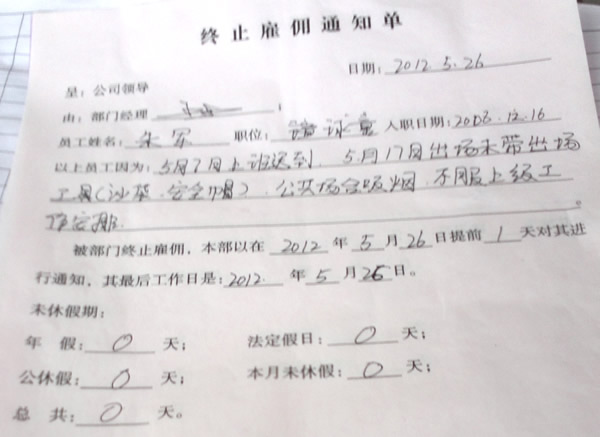 终止雇佣通知单
日期: 2012.5.26
呈: 公司领导
由: 部门经理 ;
员工姓名: 朱军 职位: 球童 入职日期: 2008.12.16
以上员工因为: 5月7日上班迟到. 5月17日出场未带出场
工具(沙草.安全帽). 公共场合吸烟. 不服上级工
作安排. 。
被部门终止雇佣,本部以在 2012 年 5 月 26 日提前 1 天对其进
行通知,其最后工作日是: 2012. 年 5 月 26 日。
未休假期:
年 假: 0 天; 法定假日: 0 天;
公休假: 0 天; 本月未休假: 0 天;
总 共: 0 天。